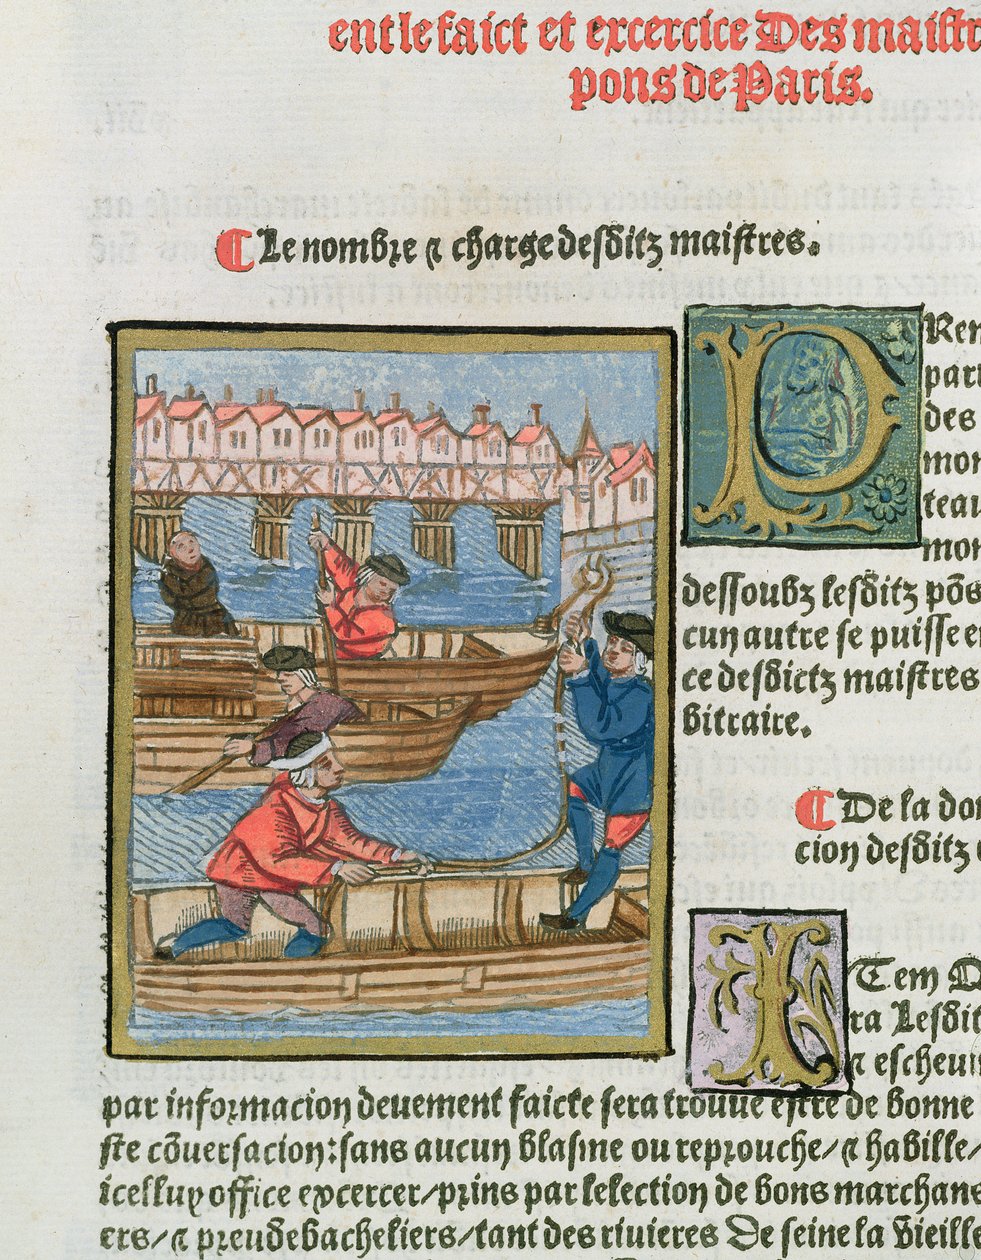 ent le faict et excercice Des maistr
pons de Paris.
¶ Le nombre ⁊ charge desditz maistres.
PRen
part
des
mon
teau
mon
dessoubz lesditz põs
cun autre se puisse e
ce desdictz maistres
bitraire.
¶ De la don
cion desditz
ITem
ra Lesdit
⁊ escheui
par informacion deuement faicte sera trouue estre de bonne
ste cõuersacion: sans aucun blasme ou reprouche/ ⁊ habille/
icelluy office excercer/ prins par lelection de bons marchans
ers/ ⁊ preudebacheliers/ tant des riuieres De seine la Vieille